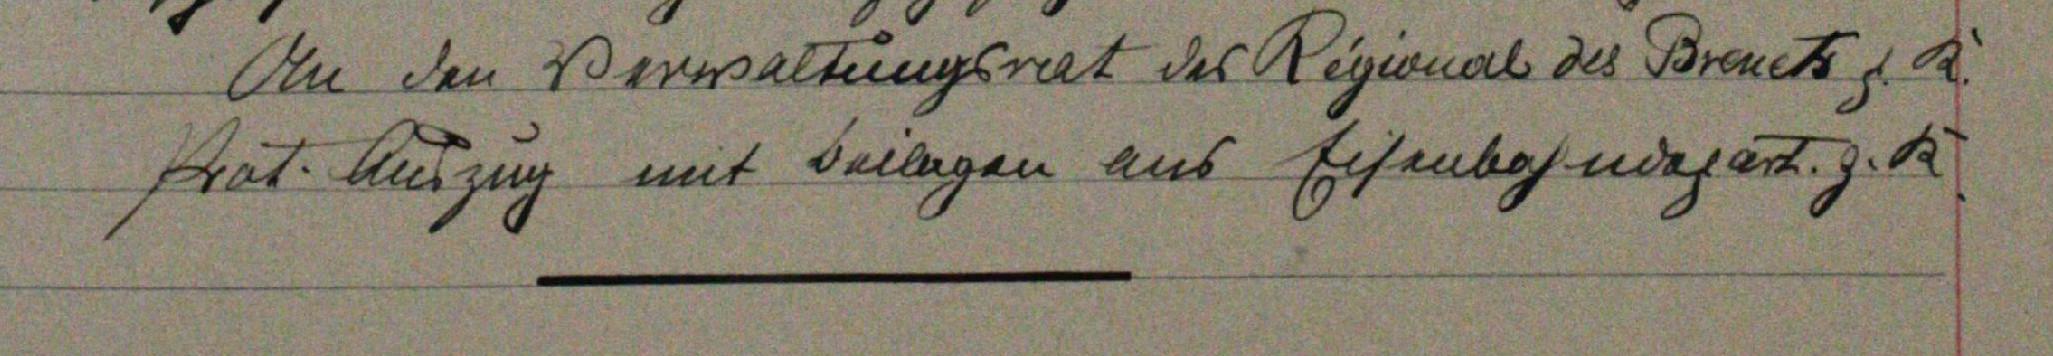 An den Verwaltungsrat des Régional des Brenets z. K.
Prot. Auszug mit Beilagen ans Eisenbahndepart. z. K.